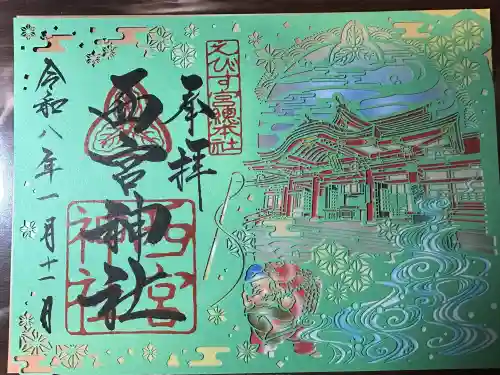 えびす宮總本社
奉拝
西宮神社
西宮神社
令和八年一月十一日